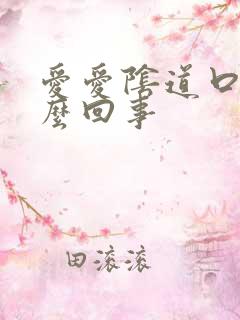 愛愛陰道口
麼回事
田滾滾